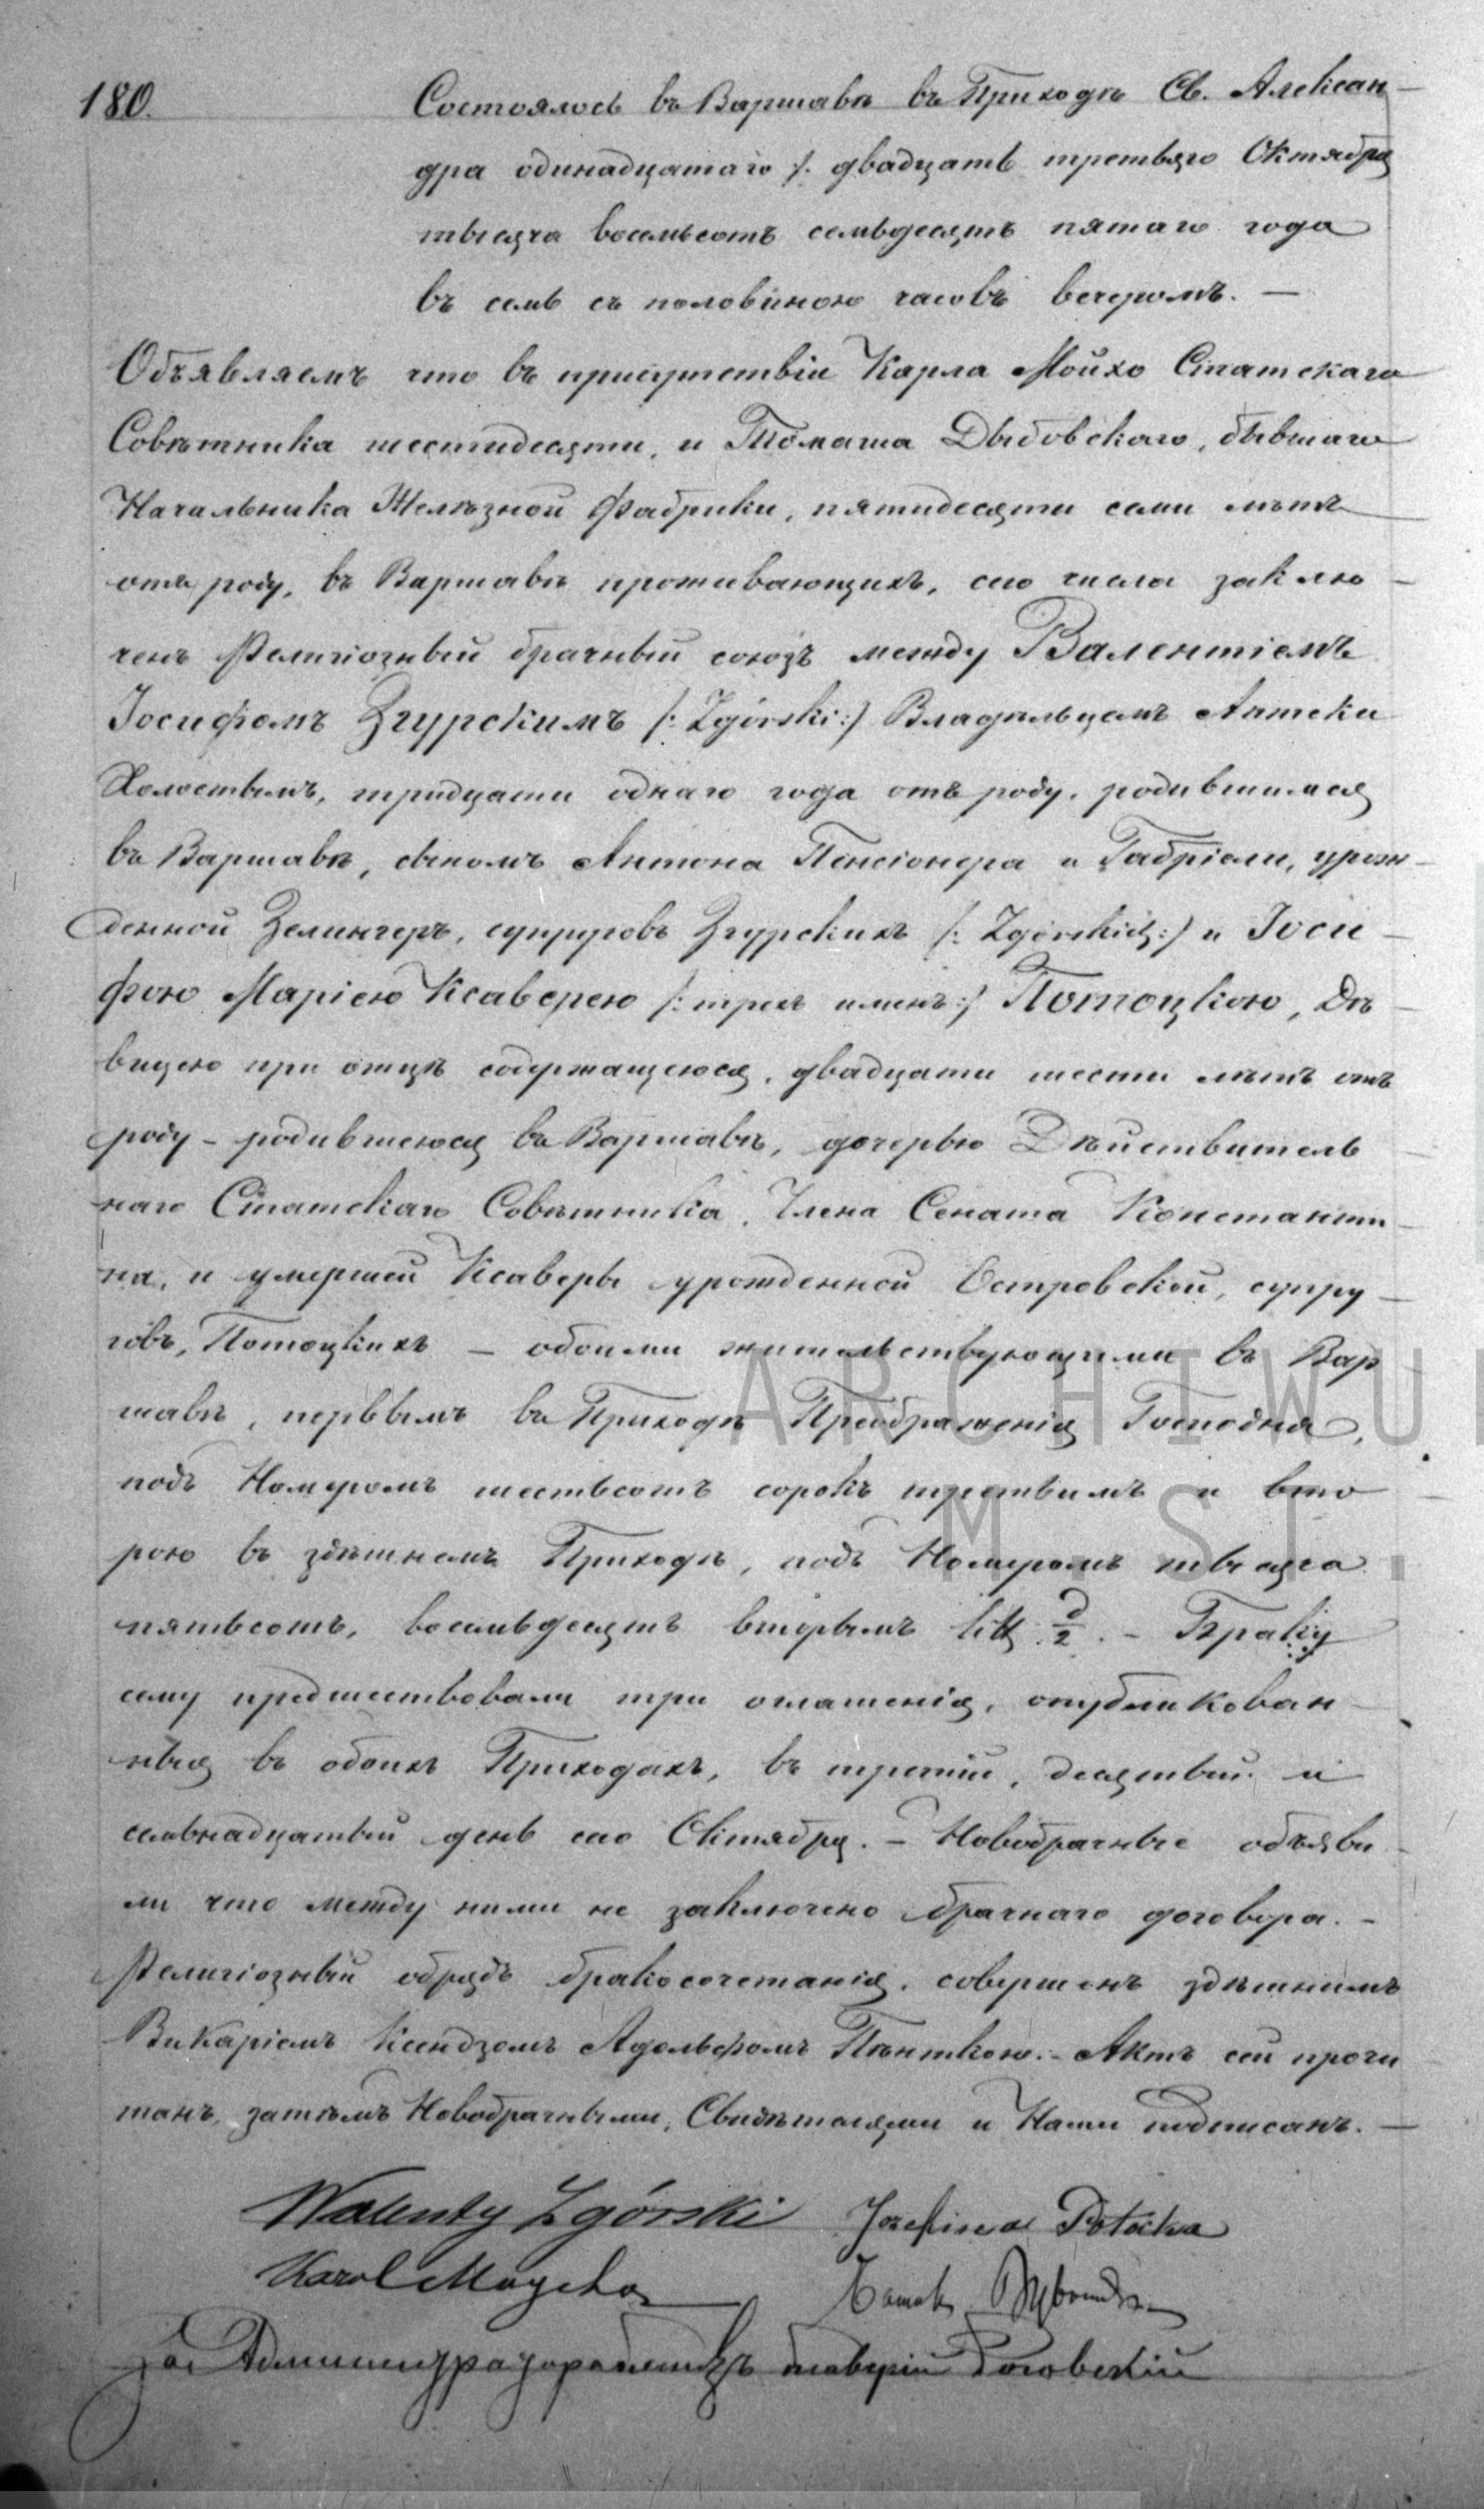 180. Состоялось въ Варшавѣ въ Приходѣ Св. Алексан-
дра одинадцатаго /. двадцать третьяго Октября
тысяча восемьсотъ семьдесятъ пятаго года
въ семь съ половиною часовъ вечеромъ. —
Объявляемъ что въ присутствіи Карла Мойхо Статскаго
Совѣтника шестидесяти, и Томаша Дыбовскаго, бывшаго
Начальника Желѣзной Фабрики, пятидесяти семи лѣтъ
отъ роду, въ Варшавѣ проживающихъ, сего числа заклю-
ченъ Религіозный брачный союзъ между Валентіемъ
Іосифомъ Згурскимъ /: Zgórski :/ Владѣльцемъ Аптеки
Холостымъ, тридцати однаго года отъ роду, родившимся
въ Варшавѣ, сыномъ Антона Пенсіонера и Габріели, урож-
денной Зелингеръ, супруговъ Згурскихъ /: Zgórskich :/ и Іоси-
фою Маріею Ксаверею /: трехъ именъ :/ Потоцкою, Дѣ-
вицею при отцѣ содержащеюся, двадцати шести лѣтъ отъ
роду - родившеюся въ Варшавѣ, дочерью Дѣйствитель
наго Статскаго Совѣтника, Члена Сената Константи-
на, и умершей Ксаверы урожденной Островской, супру-
говъ, Потоцкихъ — обоими жительствующими въ Вар
шавѣ, первымъ въ Приходѣ Преображенія Господня,
подъ Номеромъ шестьсотъ сорокъ третьимъ и вто
рою въ здѣшнемъ Приходѣ, подъ Номеромъ тысяча
пятьсотъ, восемьдесятъ вторымъ litt. d/2. - Браку
сему предшествовали три оглашенія, опубликован
ныя въ обоихъ Приходахъ, въ третій, десятый и
семьнадцатый день сего Октября. - Новобрачные объяви
ли что между ними не заключено брачнаго договора. -
Религіозный обрядъ бракосочетанія, совершенъ здѣшнимъ
Викаріемъ Ксендзомъ Адольфомъ Пѣнткою. - Актъ сей прочи
танъ, затѣмъ Новобрачными, Свидѣтелями и Нами подписанъ. —
Walenty Zgórski Józefina Potocka
Karol Moycho
За
ARCHIWU
M.ST.